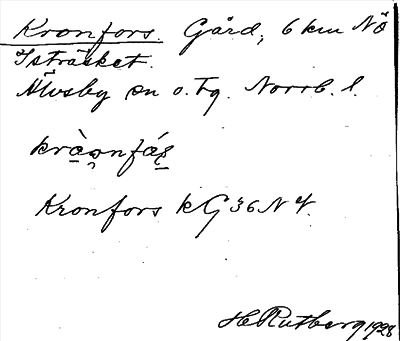 Kronfors. Gård, 6 km NÖ
Isträsket.
Älvsby sn o. tg. Norrb. l.
krà̱o̯nfá̱s̱
Kronfors k G 36 N 4.
H Rutberg 1928